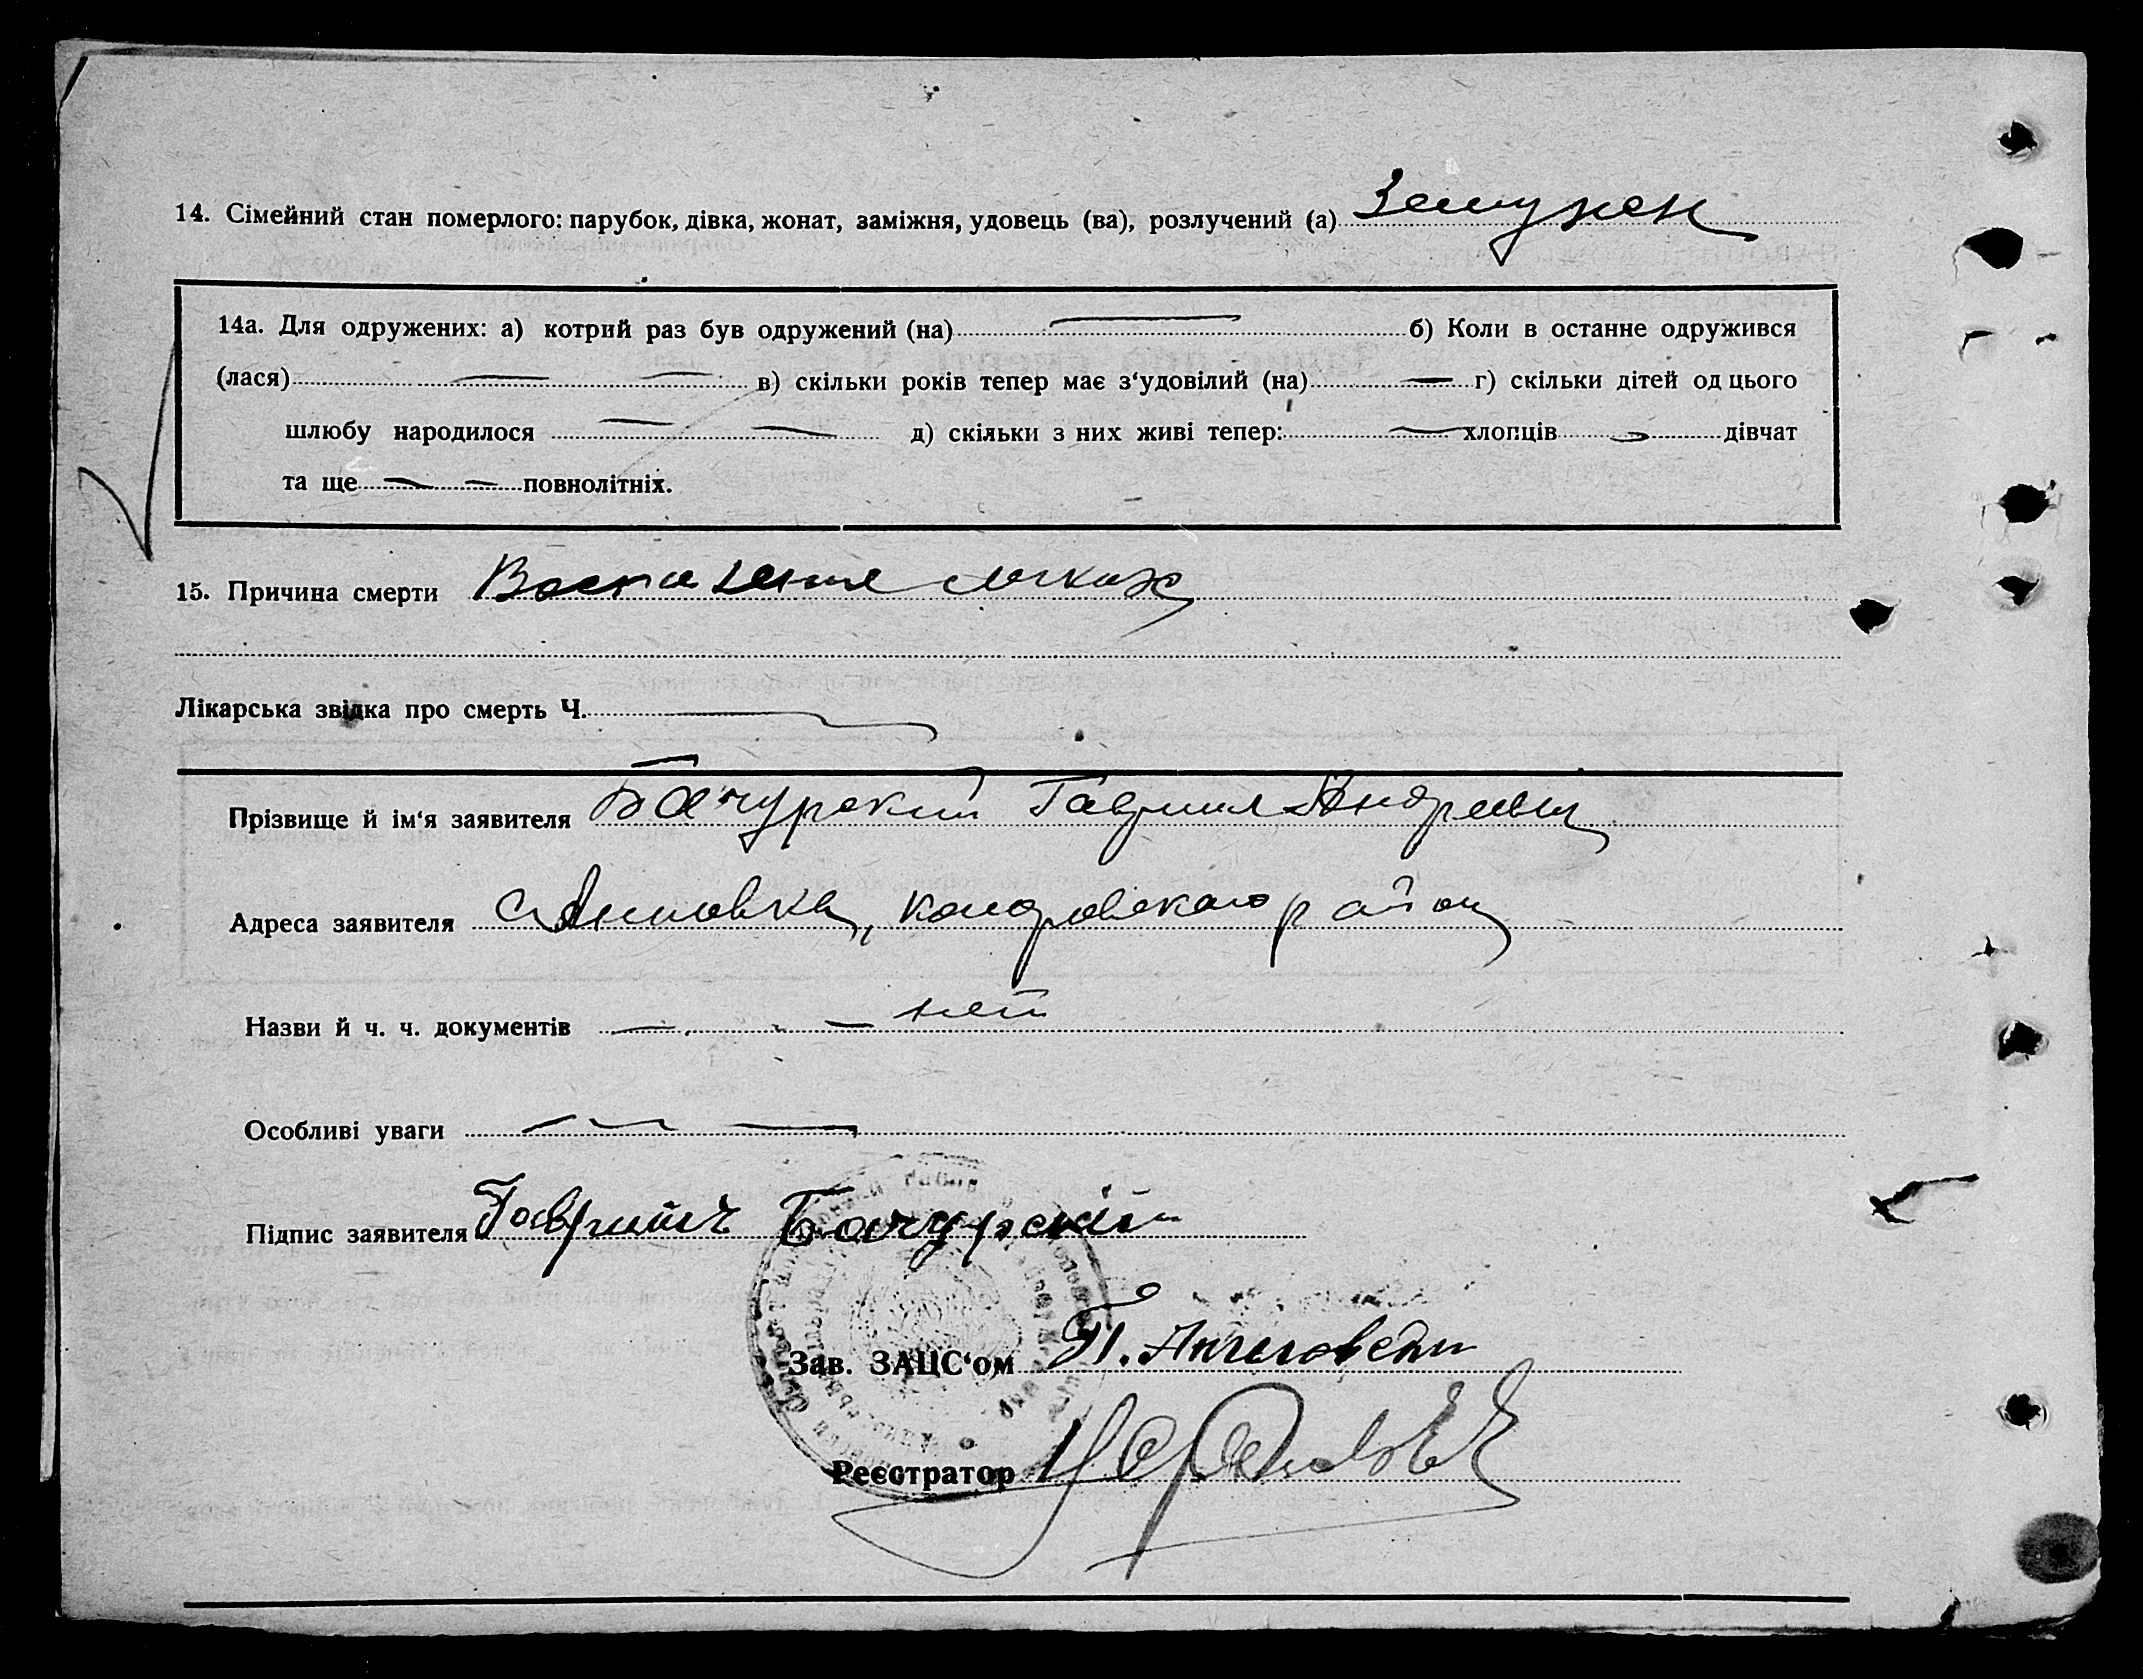 14. Сімейний стан померлого: парубок, дівка, жонат, заміжня, удовець (ва), розлучений (а) Замужем
14а. Для одружених: а) котрий раз був одружений (на) б) Коли в останне одружився
(лася) в) скільки років тепер має з‘удовілий (на) г) скільки дітей од цього
шлюбу народилося д) скільки з них живі тепер: хлопців дівчат
та ще повнолітніх.
15. Причина смерти Воспаление легких
Лікарська звідка про смерть Ч.
Прізвище й ім‘я заявителя Бачурский Гавриил Андреевич
Адреса заявителя с Анновка, района
Назви й ч. ч. документів нет
Особливі уваги
Підпис заявителя Бачурский
Зав. ЗАЦС‘ом П.
Реєстратор